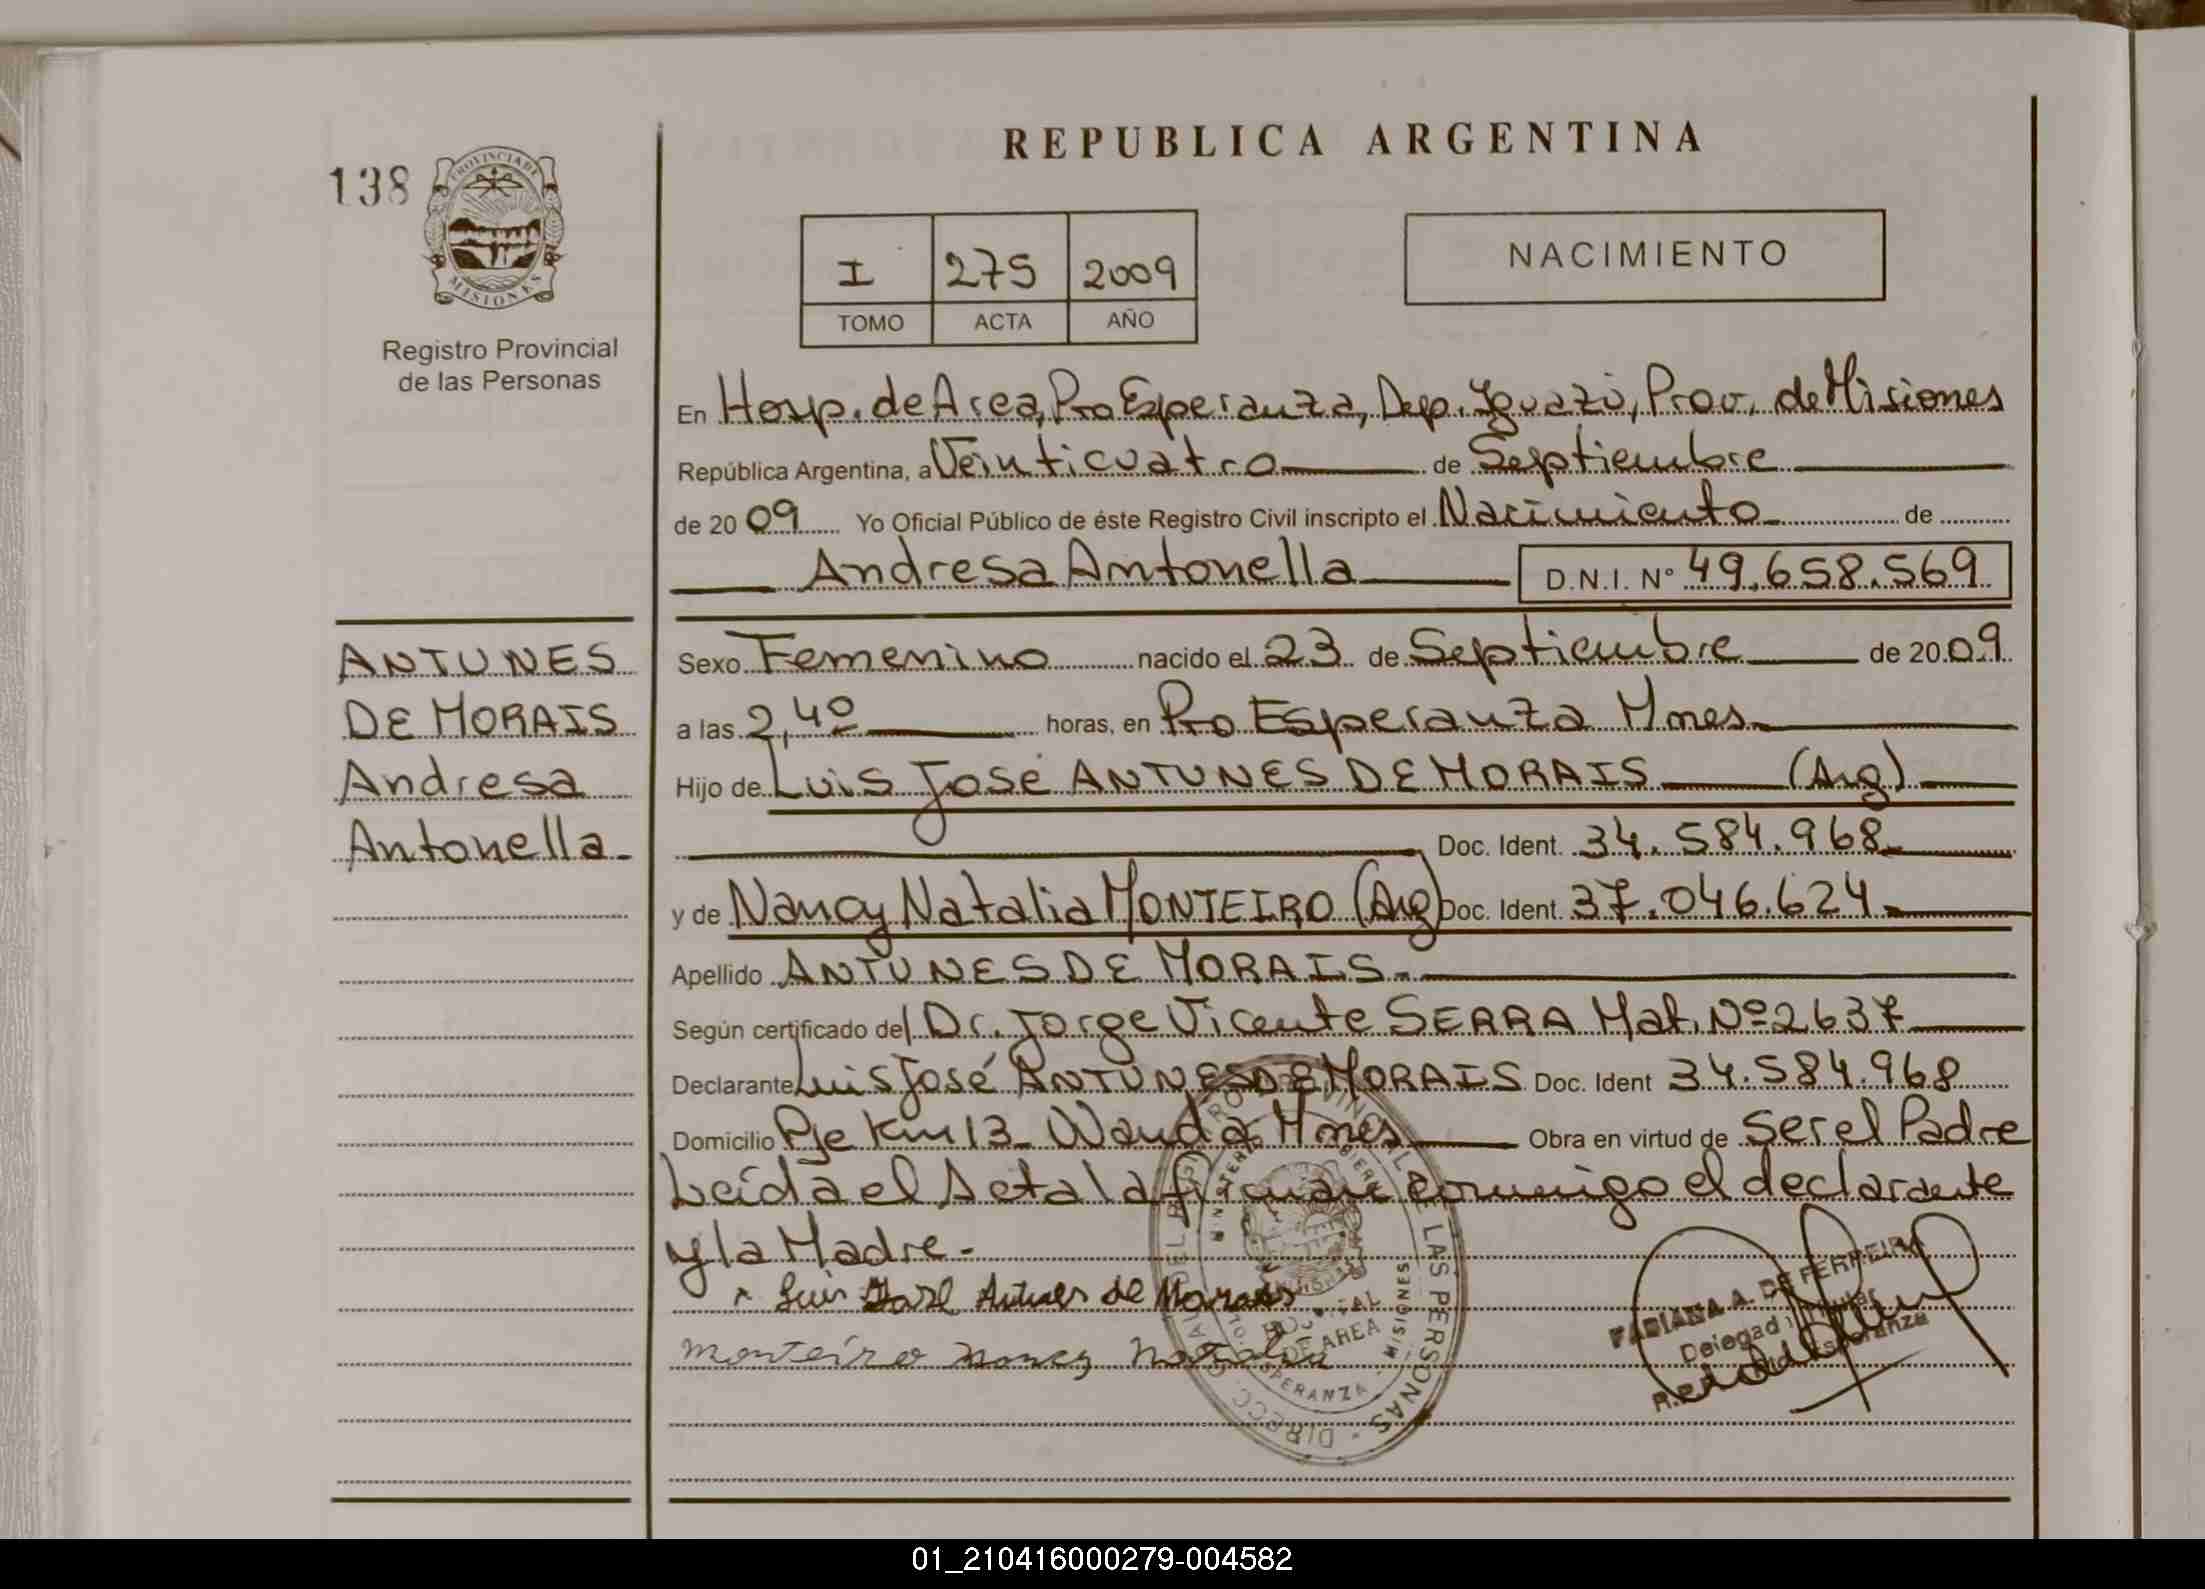 REPUBLICA ARGENTINA
138
PROVINCIA DE
MISIONES
Registro Provincial
de las Personas
I 275 2009
TOMO ACTA AÑO
NACIMIENTO
En Hosp. de Area, Pto Esperanza, Dep. Iguazú, Prov. de Misiones
República Argentina, a Veinticuatro de Septiembre
de 20 09 Yo Oficial Público de éste Registro Civil inscripto el Nacimiento de
Andresa Antonella D.N.I. Nº 49.658.569
ANTUNES
DE MORAIS
Andresa
Antonella.
Sexo Femenino nacido el 23 de Septiembre de 20 09
a las 2,40 horas, en Pto Esperanza Mnes.
Hijo de Luis José ANTUNES DE MORAIS (Arg)
Doc. Ident. 34.584.968
y de Nancy Natalia MONTEIRO (Arg) Doc. Ident. 37.046.624
Apellido ANTUNES DE MORAIS.
Según certificado del Dr. Jorge Vicente SERRA Mat. Nº 2637
Declarante Luis José ANTUNES DE MORAIS Doc. Ident 34.584.968
Domicilio Pje Km 13 Wanda Mnes Obra en virtud de Ser el Padre
Leída el Acta la firman conmigo el declarante
y la Madre.
Luis José Antunes de Morais
Monteiro Nancy Natalia
DE LAS PERSONAS
HOSPITAL
DE AREA
MISIONES
ESPERANZA
FABIANA A. DE FERREIRA
01_210416000279-004582